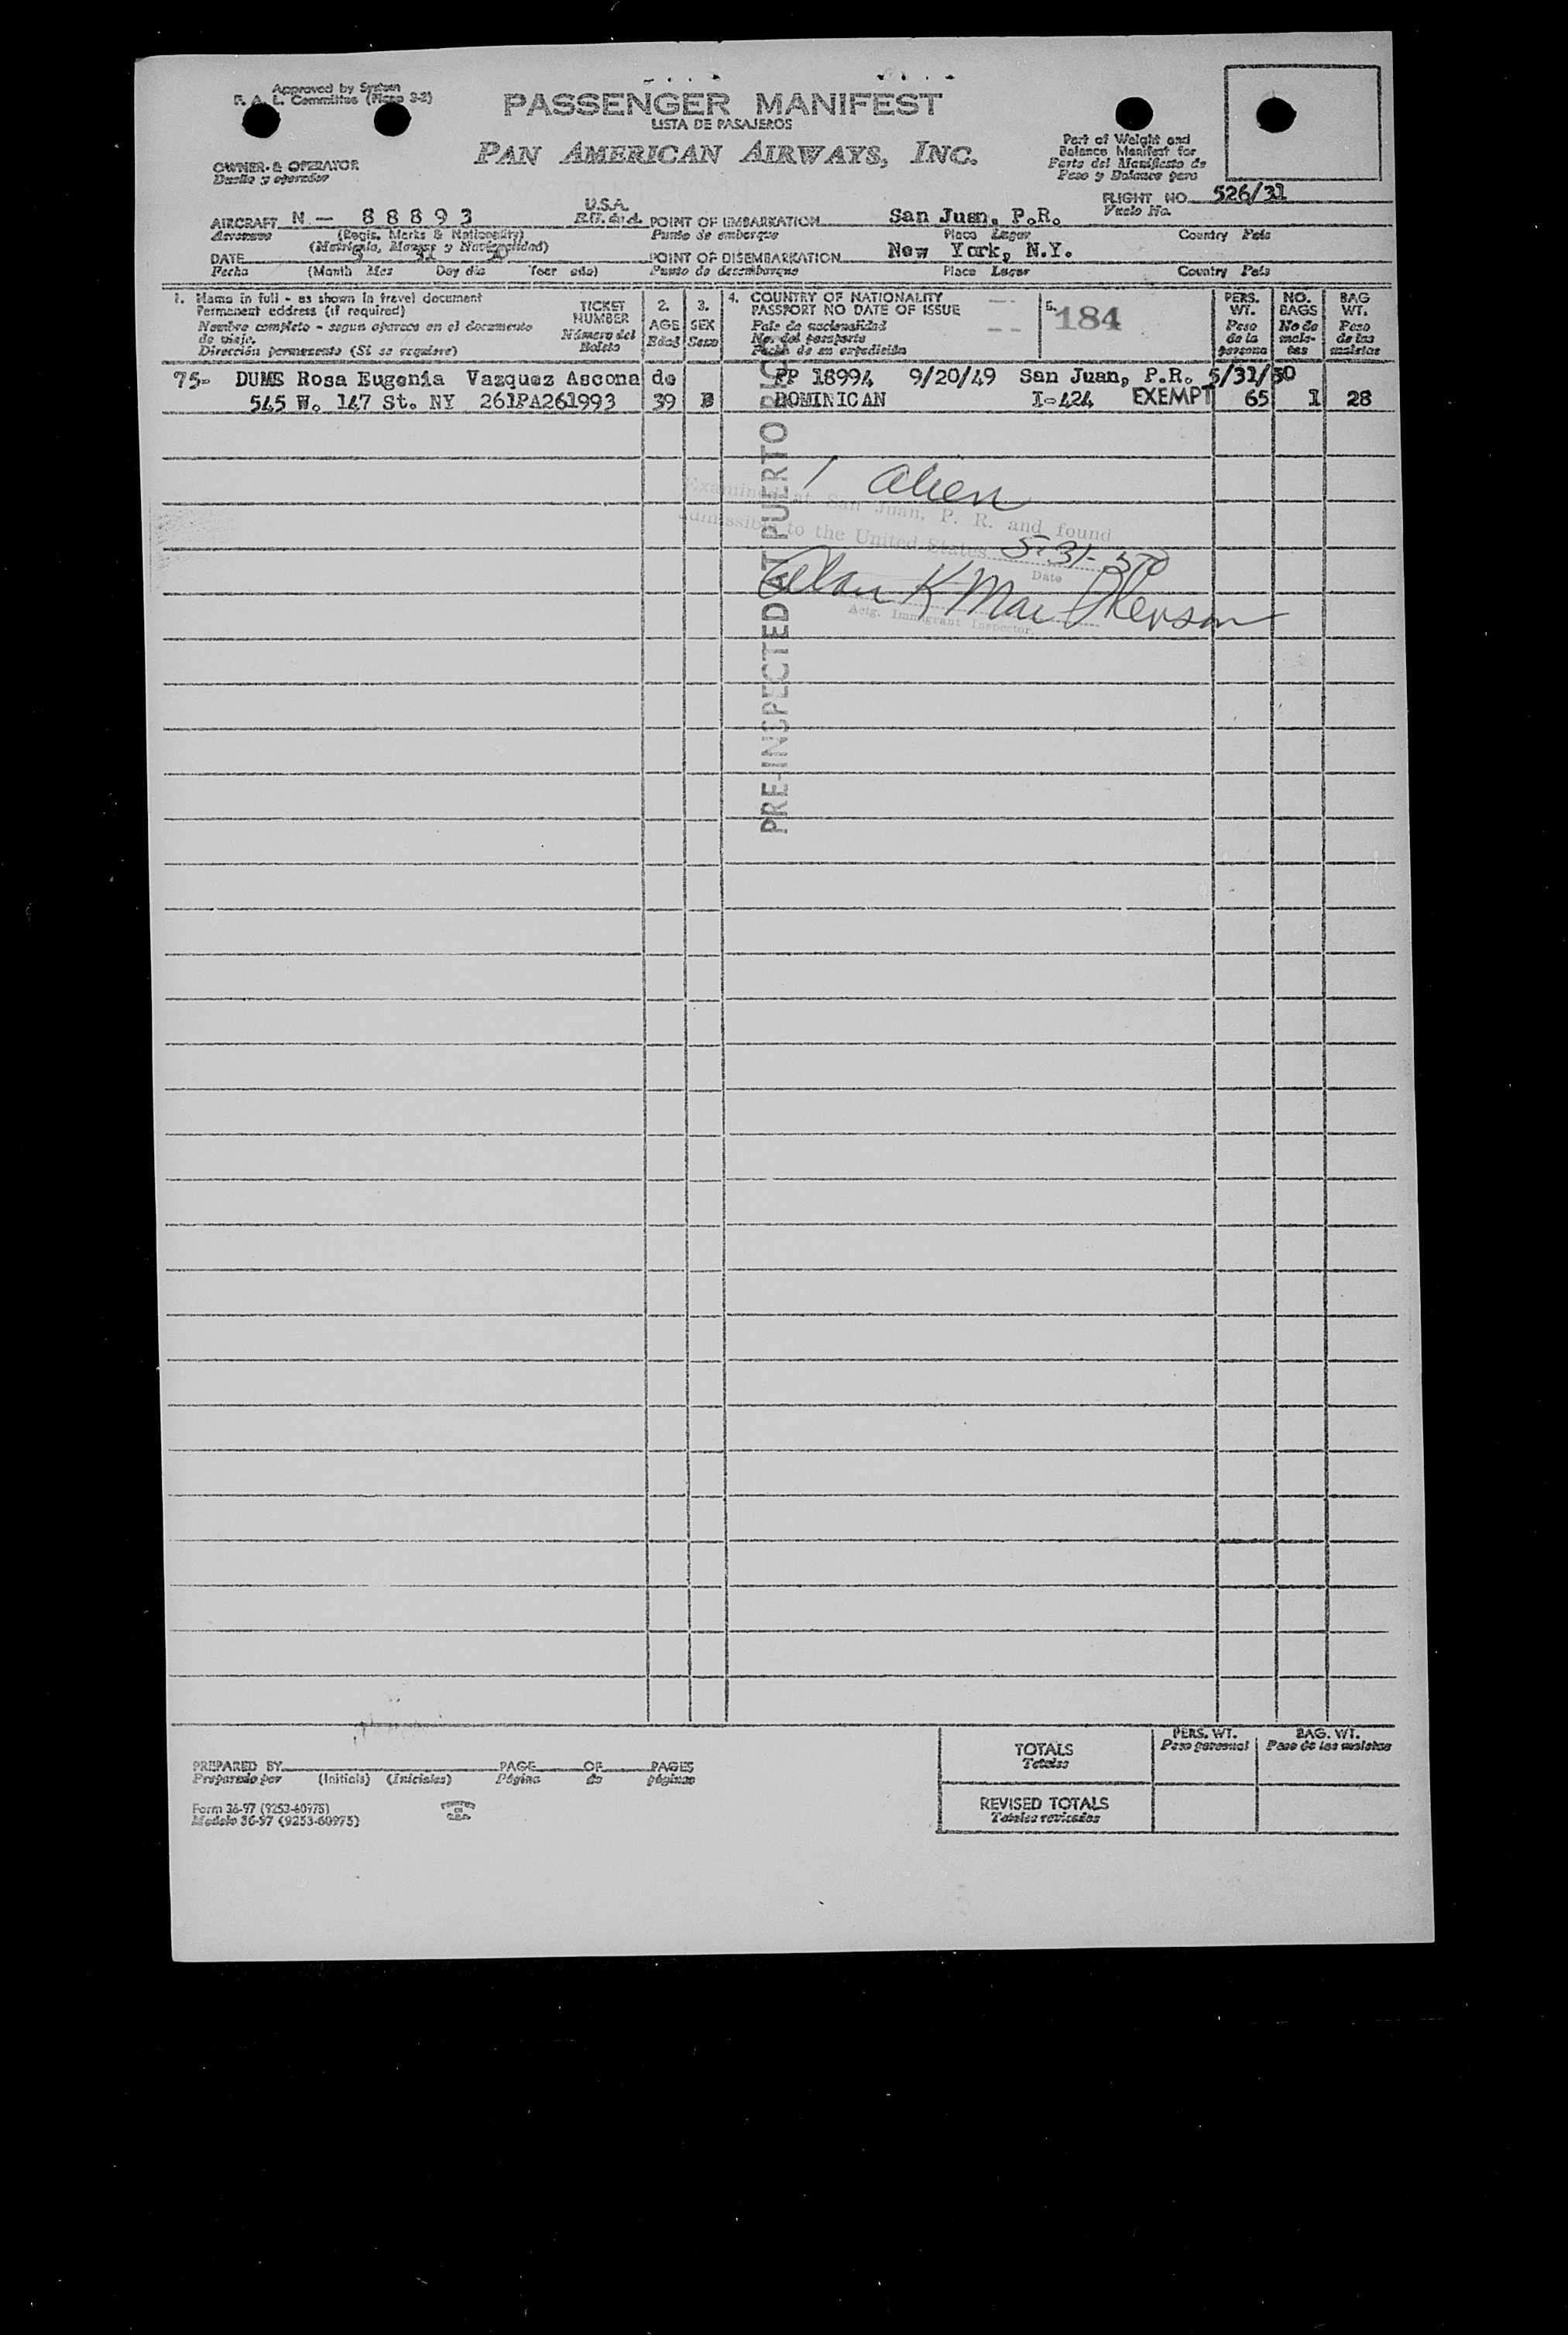 Approved by System
F. A. L. Committee (Mexo 3-2)
PASSENGER MANIFEST
LISTA DE PASAJEROS
PAN AMERICAN AIRWAYS, INC.
OWNER & OPERATOR
Dueño y operador
Part of Weight and
Balance Manifest for
Parte del Manifiesto de
Peso y Balance para
FLIGHT NO. 526/31
Vuelo No.
AIRCRAFT N - 88893 U.S.A.
Aeronave (Regis. Marks & Nationality) E.U. de A.
(Matrícula, Marcas y Nacionalidad)
POINT OF EMBARKATION San Juan, P.R.
Punto de embarque Place Lugar Country País
DATE 5 31 50
Fecha (Month Mes Day día Year año)
POINT OF DISEMBARKATION New York, N.Y.
Punto de desembarque Place Lugar Country País
1. Name in full - as shown in travel document
Permanent address (if required)
Nombre completo - segun aparece en el documento
de viaje.
Dirección permanente (Si se requiere)
TICKET
NUMBER
Número del
Boleto
2.
AGE
Edad
3.
SEX
Sexo
4. COUNTRY OF NATIONALITY
PASSPORT NO DATE OF ISSUE
País de nacionalidad
No. del pasaporte
Fecha de su expedición
5.
184
PERS.
WT.
Peso
de la
persona
NO.
BAGS
No de
male-
tas
BAG
WT.
Peso
de las
maletas
75- DUME Rosa Eugenia Vazquez Ascona de PP 18994 9/20/49 San Juan, P.R. 5/31/50
545 W. 147 St. NY 261PA261993 39 DOMINICAN I-424 EXEMPT 65 1 28
PRE-INSPECTED AT PUERTO RICO
1 alien
Examined at San Juan, P. R. and found
admissible to the United States 5-31-50
Date
Alan K Mac Pherson
Actg. Immigrant Inspector.
PREPARED BY PAGE OF PAGES
Preparado por (Initials) (Iniciales) Página de páginas
Form 36-97 (9253-60975)
Modelo 36-97 (9253-60975)
PRINTED
IN
U.S.A.
PERS. WT.
Peso personal
BAG. WT.
Peso de las maletas
TOTALS
Totales
REVISED TOTALS
Totales revisados